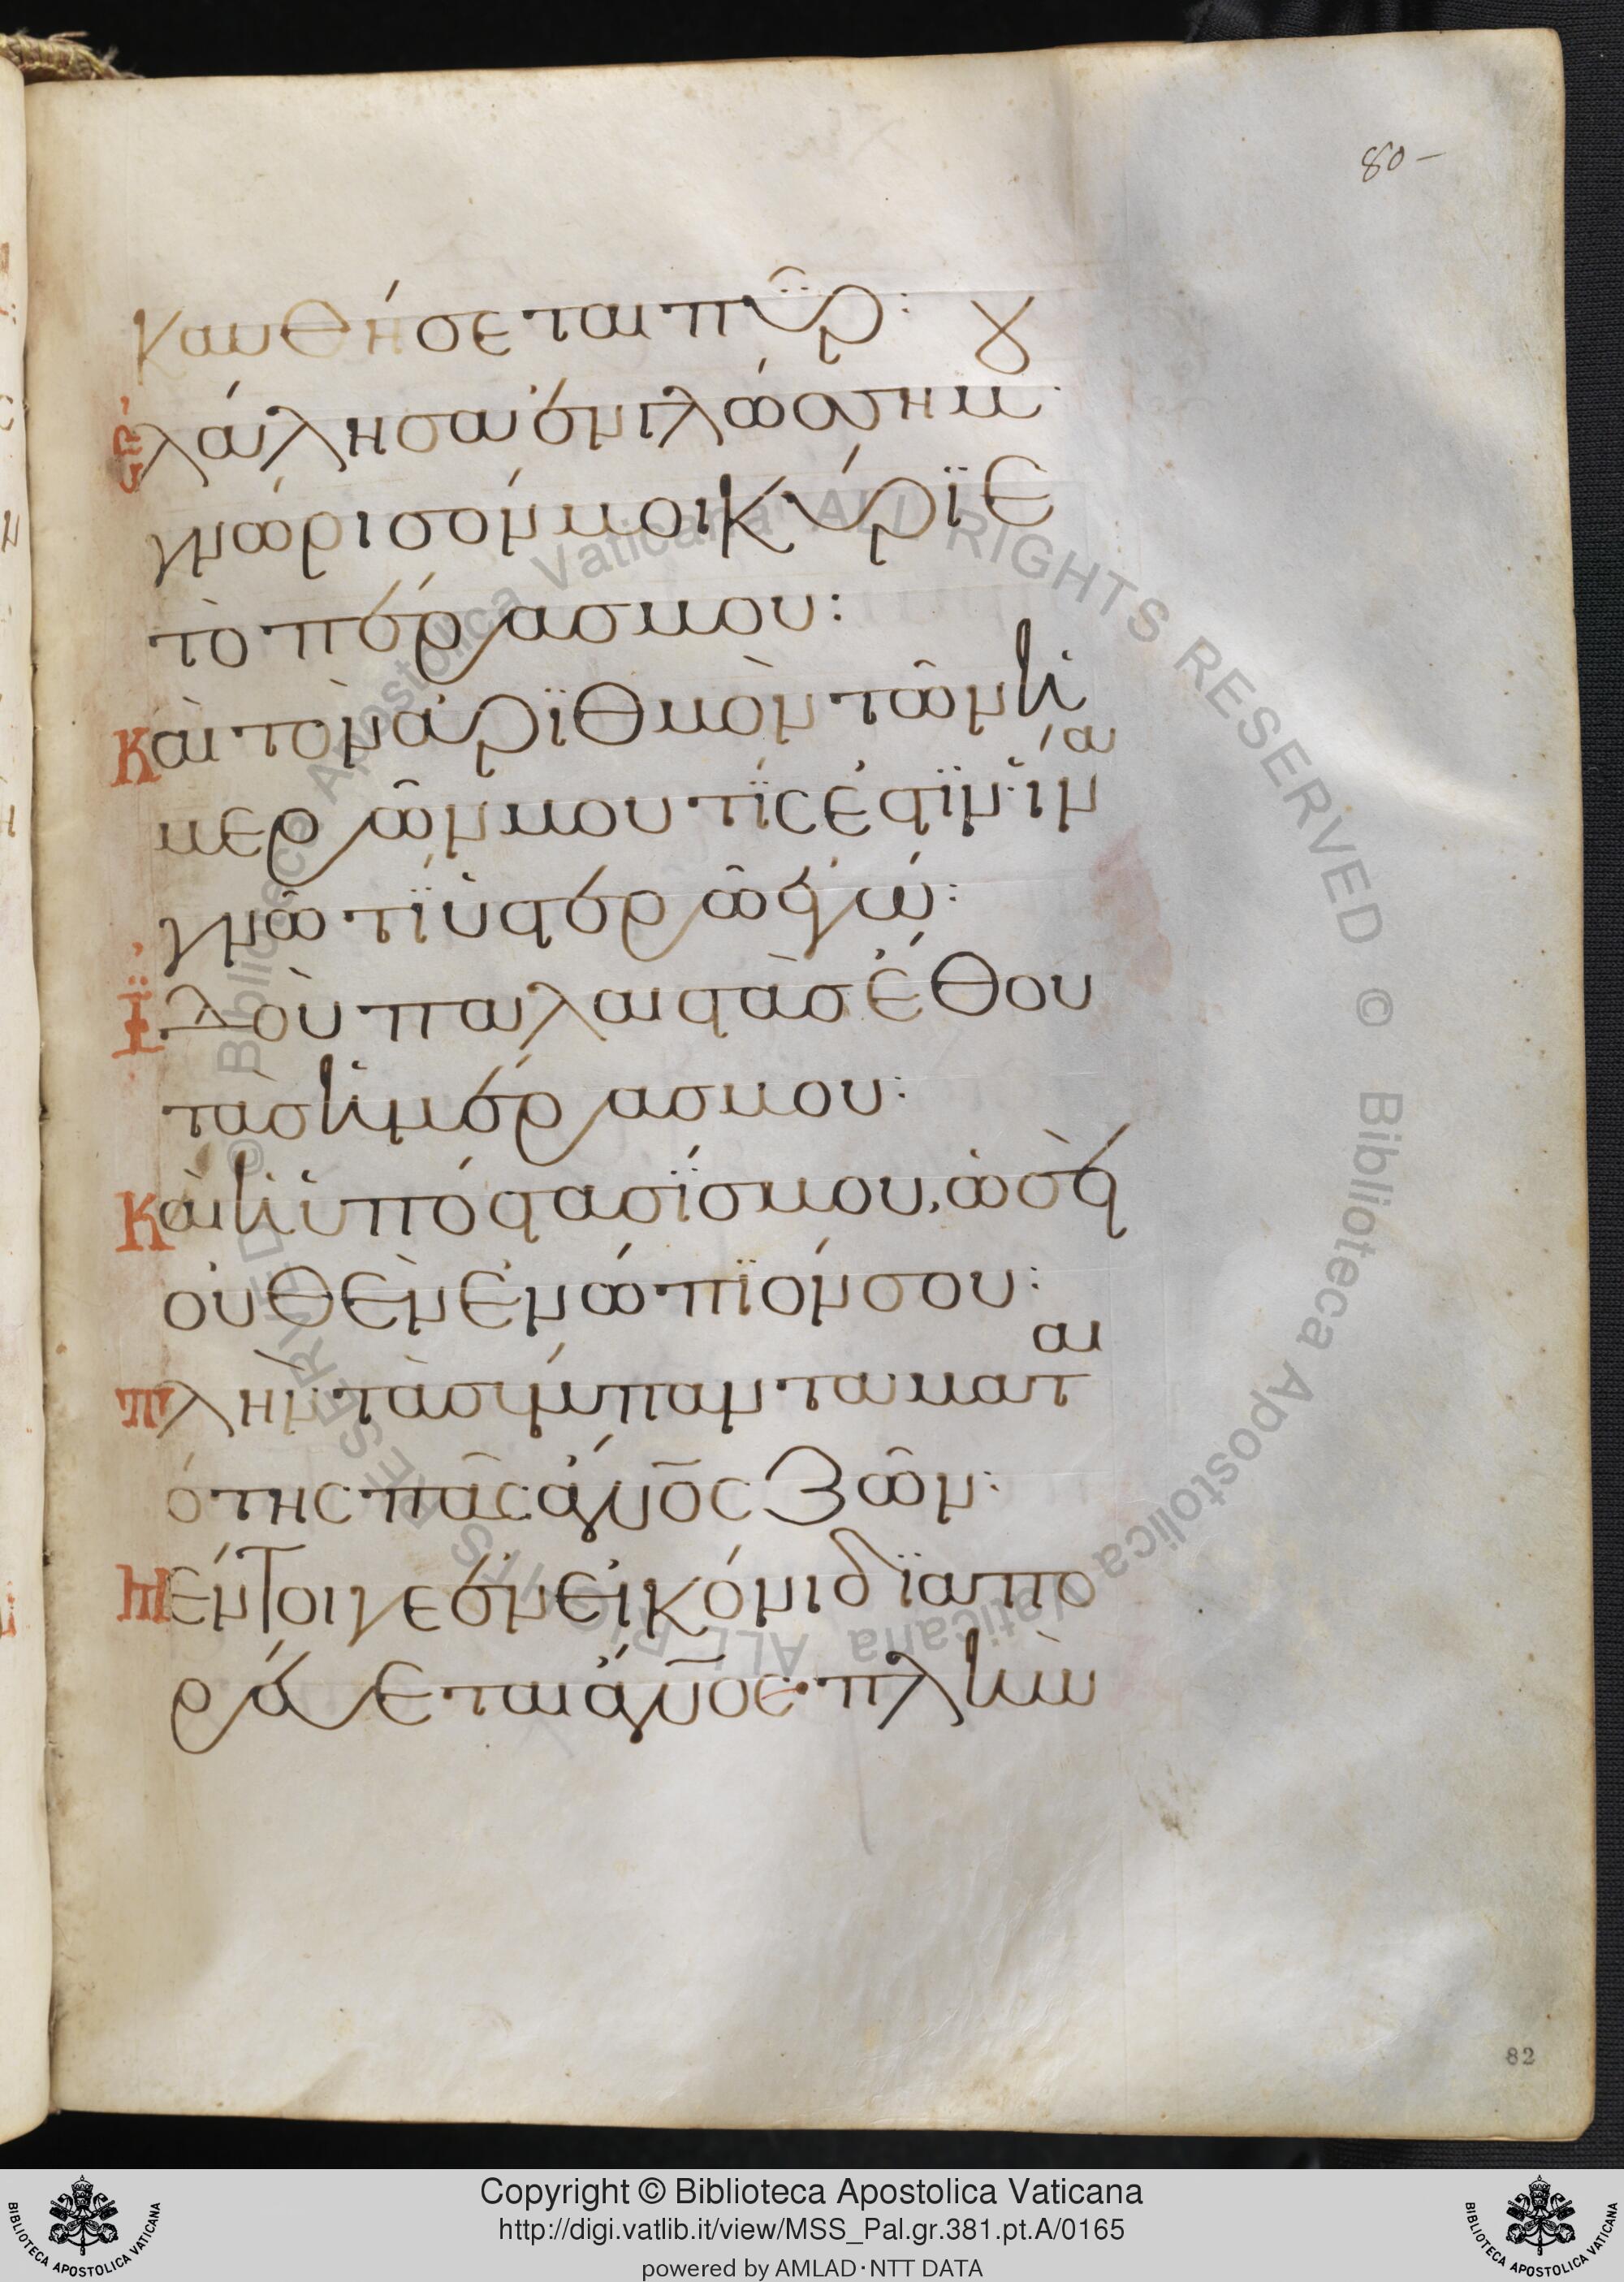 80-
καυθήσεται πῦρ:
ἐλάλησα ἐν γλώσση μου
γνώρισόν μοι κύριε
τὸ πέρας μου:
Καὶ τὸν ἀριθμὸν τῶν ἡ
μερῶν μου τίς ἐστϊν· ἵνα
γνῶ τί ὑστερῶ ἐγώ:
Ἰδοὺ παλαιστὰς ἔθου
τὰς ἡμέρας μου:
Καὶ ἡ ὑπόστασίς μου, ὡσεὶ
οὐθὲν ἐνώπϊόν σου:
πλὴν τὰ σύμπαντα μαται
ότης πᾶς ἄνος ζῶν:
Μέντοιγε ἐν εἰκόνι διαπο
ρεύεται ἄνος· πλὴν
82
Copyright © Biblioteca Apostolica Vaticana
http://digi.vatlib.it/view/MSS_Pal.gr.381.pt.A/0165
powered by AMLAD·NTT DATA
BIBLIOTECA APOSTOLICA VATICANA
BIBLIOTECA APOSTOLICA VATICANA
© Biblioteca Apostolica Vaticana ALL RIGHTS RESERVED
© Biblioteca Apostolica Vaticana ALL RIGHTS RESERVED